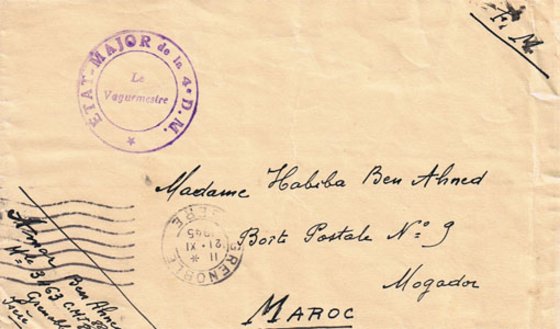 F. M.
ETAT-MAJOR de la 4e D.M.
Le
Vaguemestre
Madame Habiba Ben Ahmed
Boite Postale N° 9
Mogador
MAROC
GRENOBLE
11 *
21 - XI
1945
ISERE
Ben Ahme
Grenobl
Isère